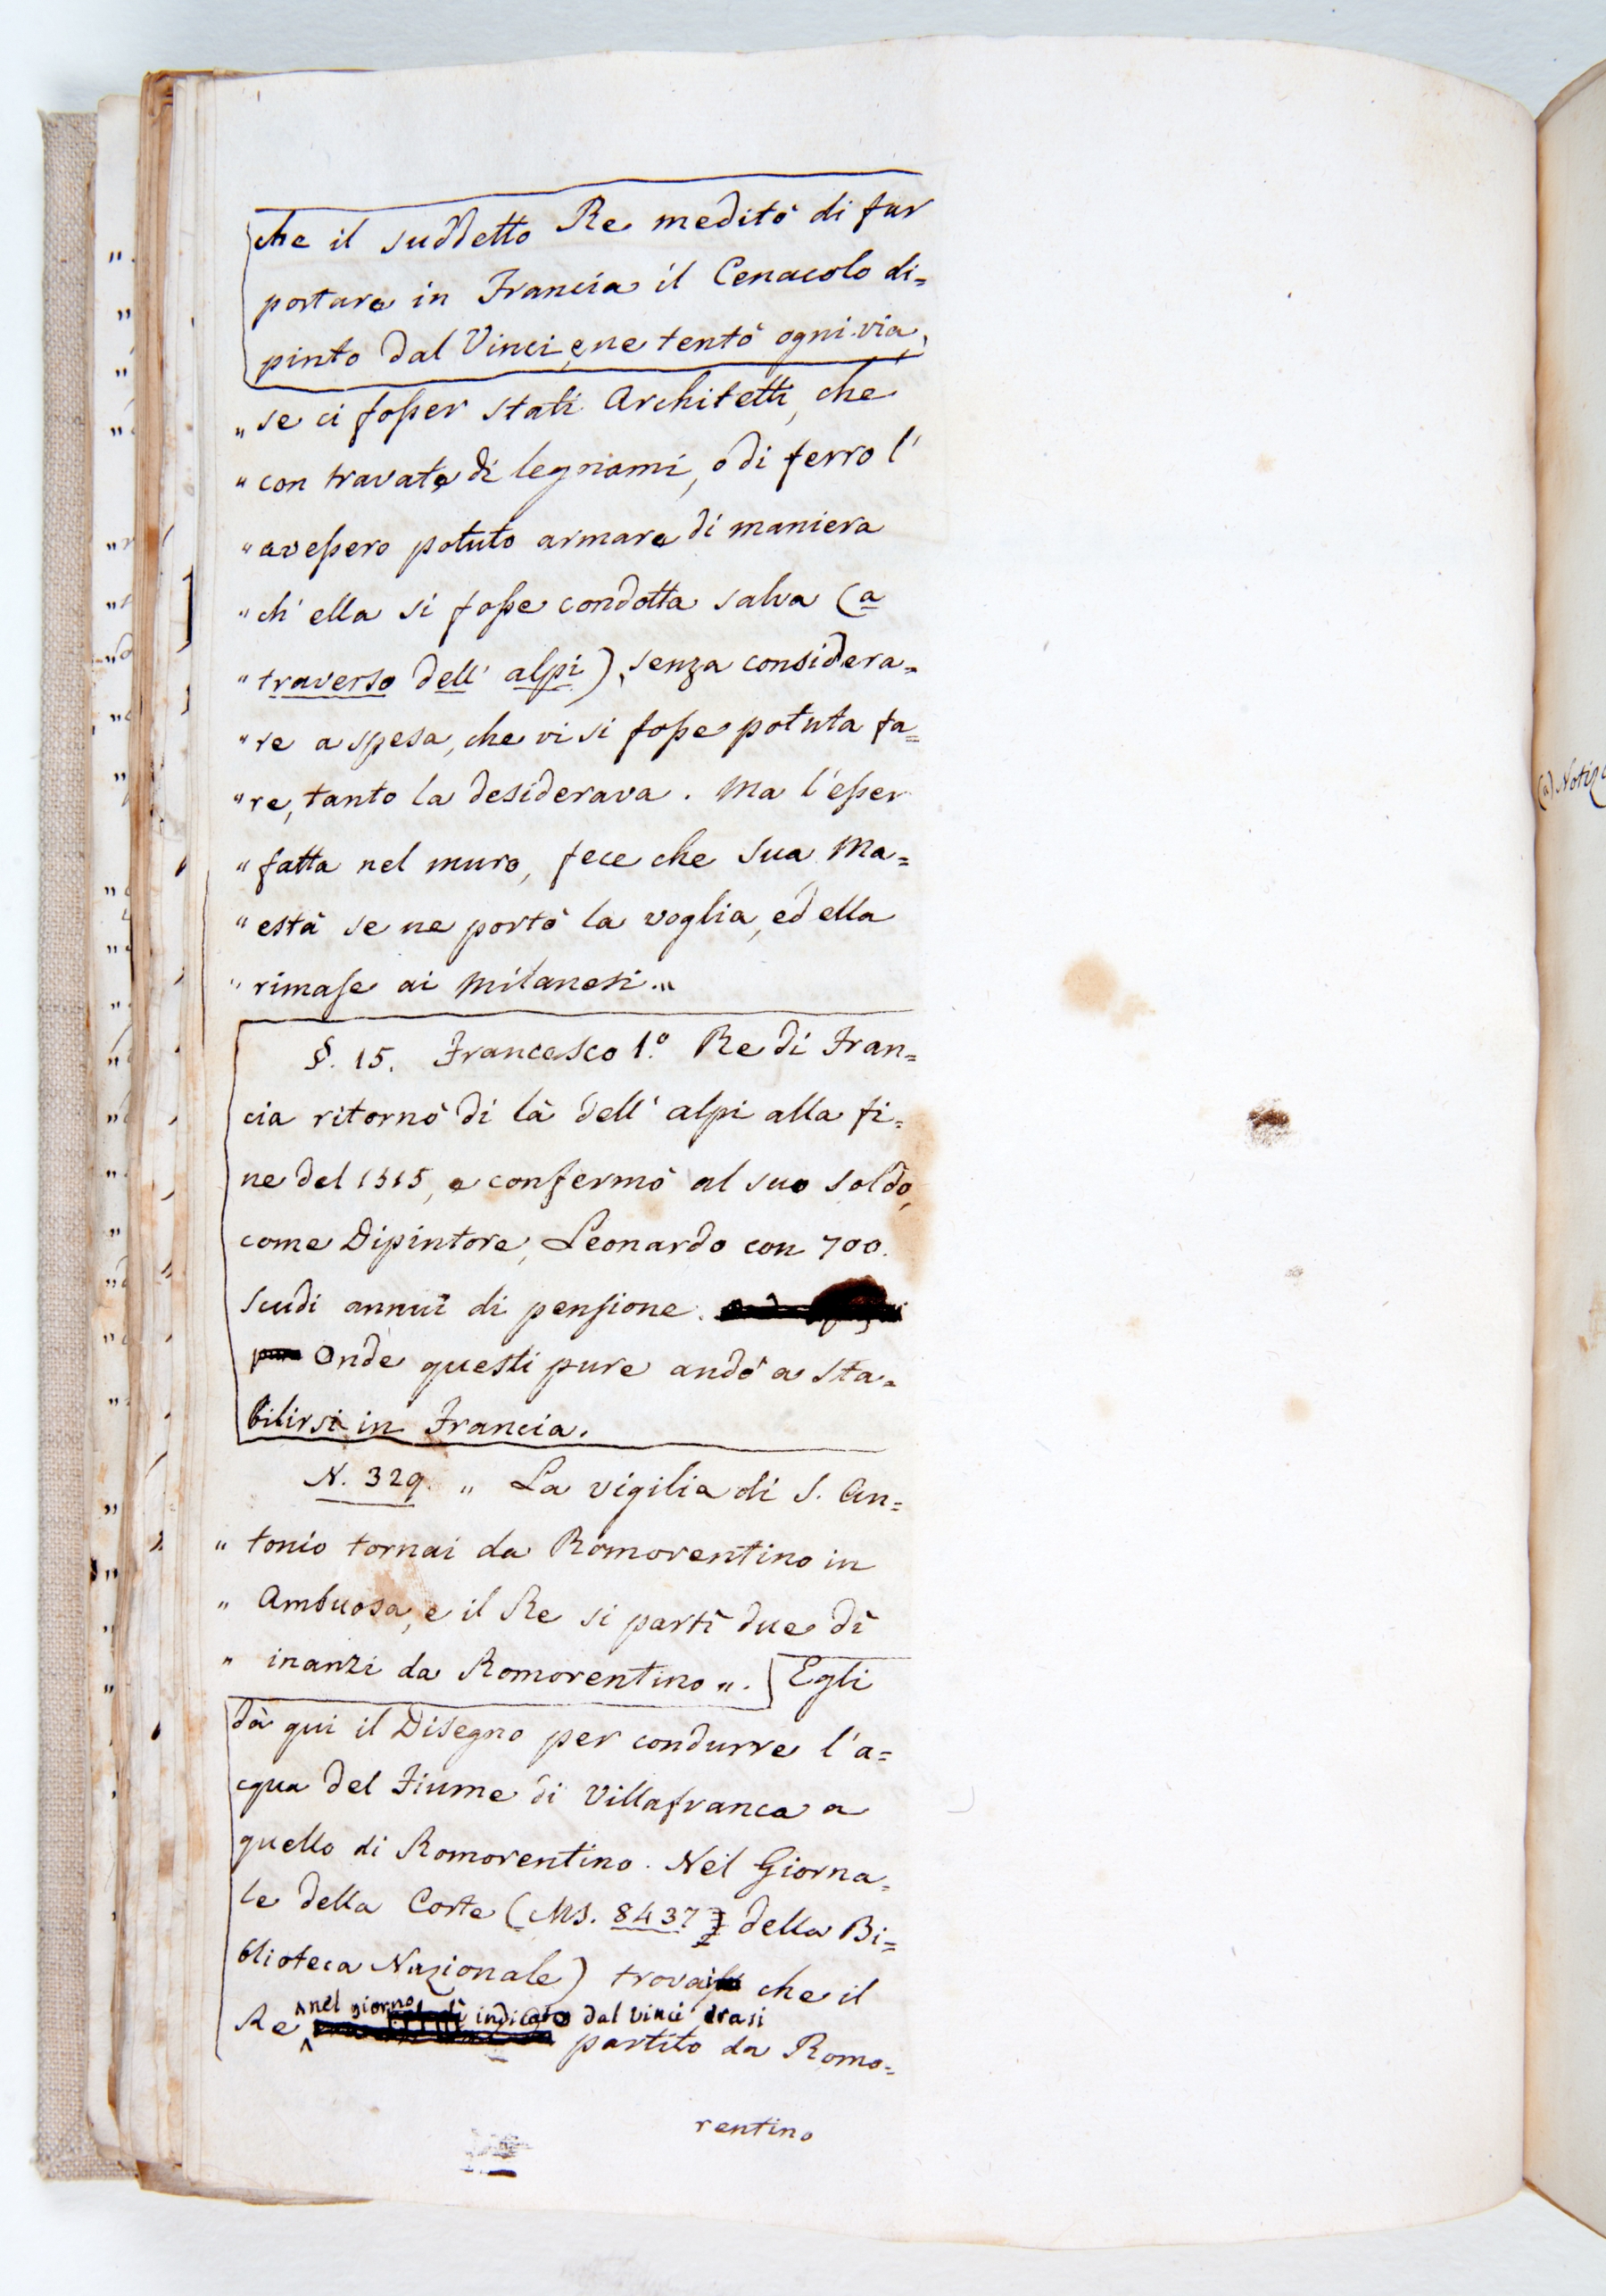 che il suddetto Re meditò di far
portare in Francia il Cenacolo di=
pinto dal Vinci, e ne tentò ogni via,
„ se ci foſser stati Architetti, che
„ con travate di legnami, o di ferro l'
„ aveſsero potuto armare di maniera
„ ch' ella si foſse condotta salva (a
„ traverso dell' alpi), senza considera=
„ re a spesa, che vi si foſse potuta fa=
„ re, tanto la desiderava. Ma l'eſser
„ fatta nel muro, fece che Sua Ma=
„ està se ne portò la voglia, ed ella
„ rimaſe ai Milanesi „.
§. 15. Francesco 1.° Re di Fran=
cia ritornò di là dell' alpi alla fi=
ne del 1515, e confermò al suo soldo,
come Dipintore, Leonardo con 700.
Scudi annui di penſione.
Onde questi pure andò a sta=
bilirsi in Francia.
N. 329. „ La vigilia di S. An=
„ tonio tornai da Romorentino in
„ Ambuosa, e il Re si partì due dì
„ inanzi da Romorentino „. Egli
dà qui il Disegno per condurre l'a=
cqua del Fiume di Villafranca a
quello di Romorentino. Nel Giorna=
le della Corte (Ms. 8437 della Bi=
blioteca Nazionale) trovasi che il
Re nel giorno indicato dal Vinci erasi
partito da Romo=
rentino
(a) Notiz